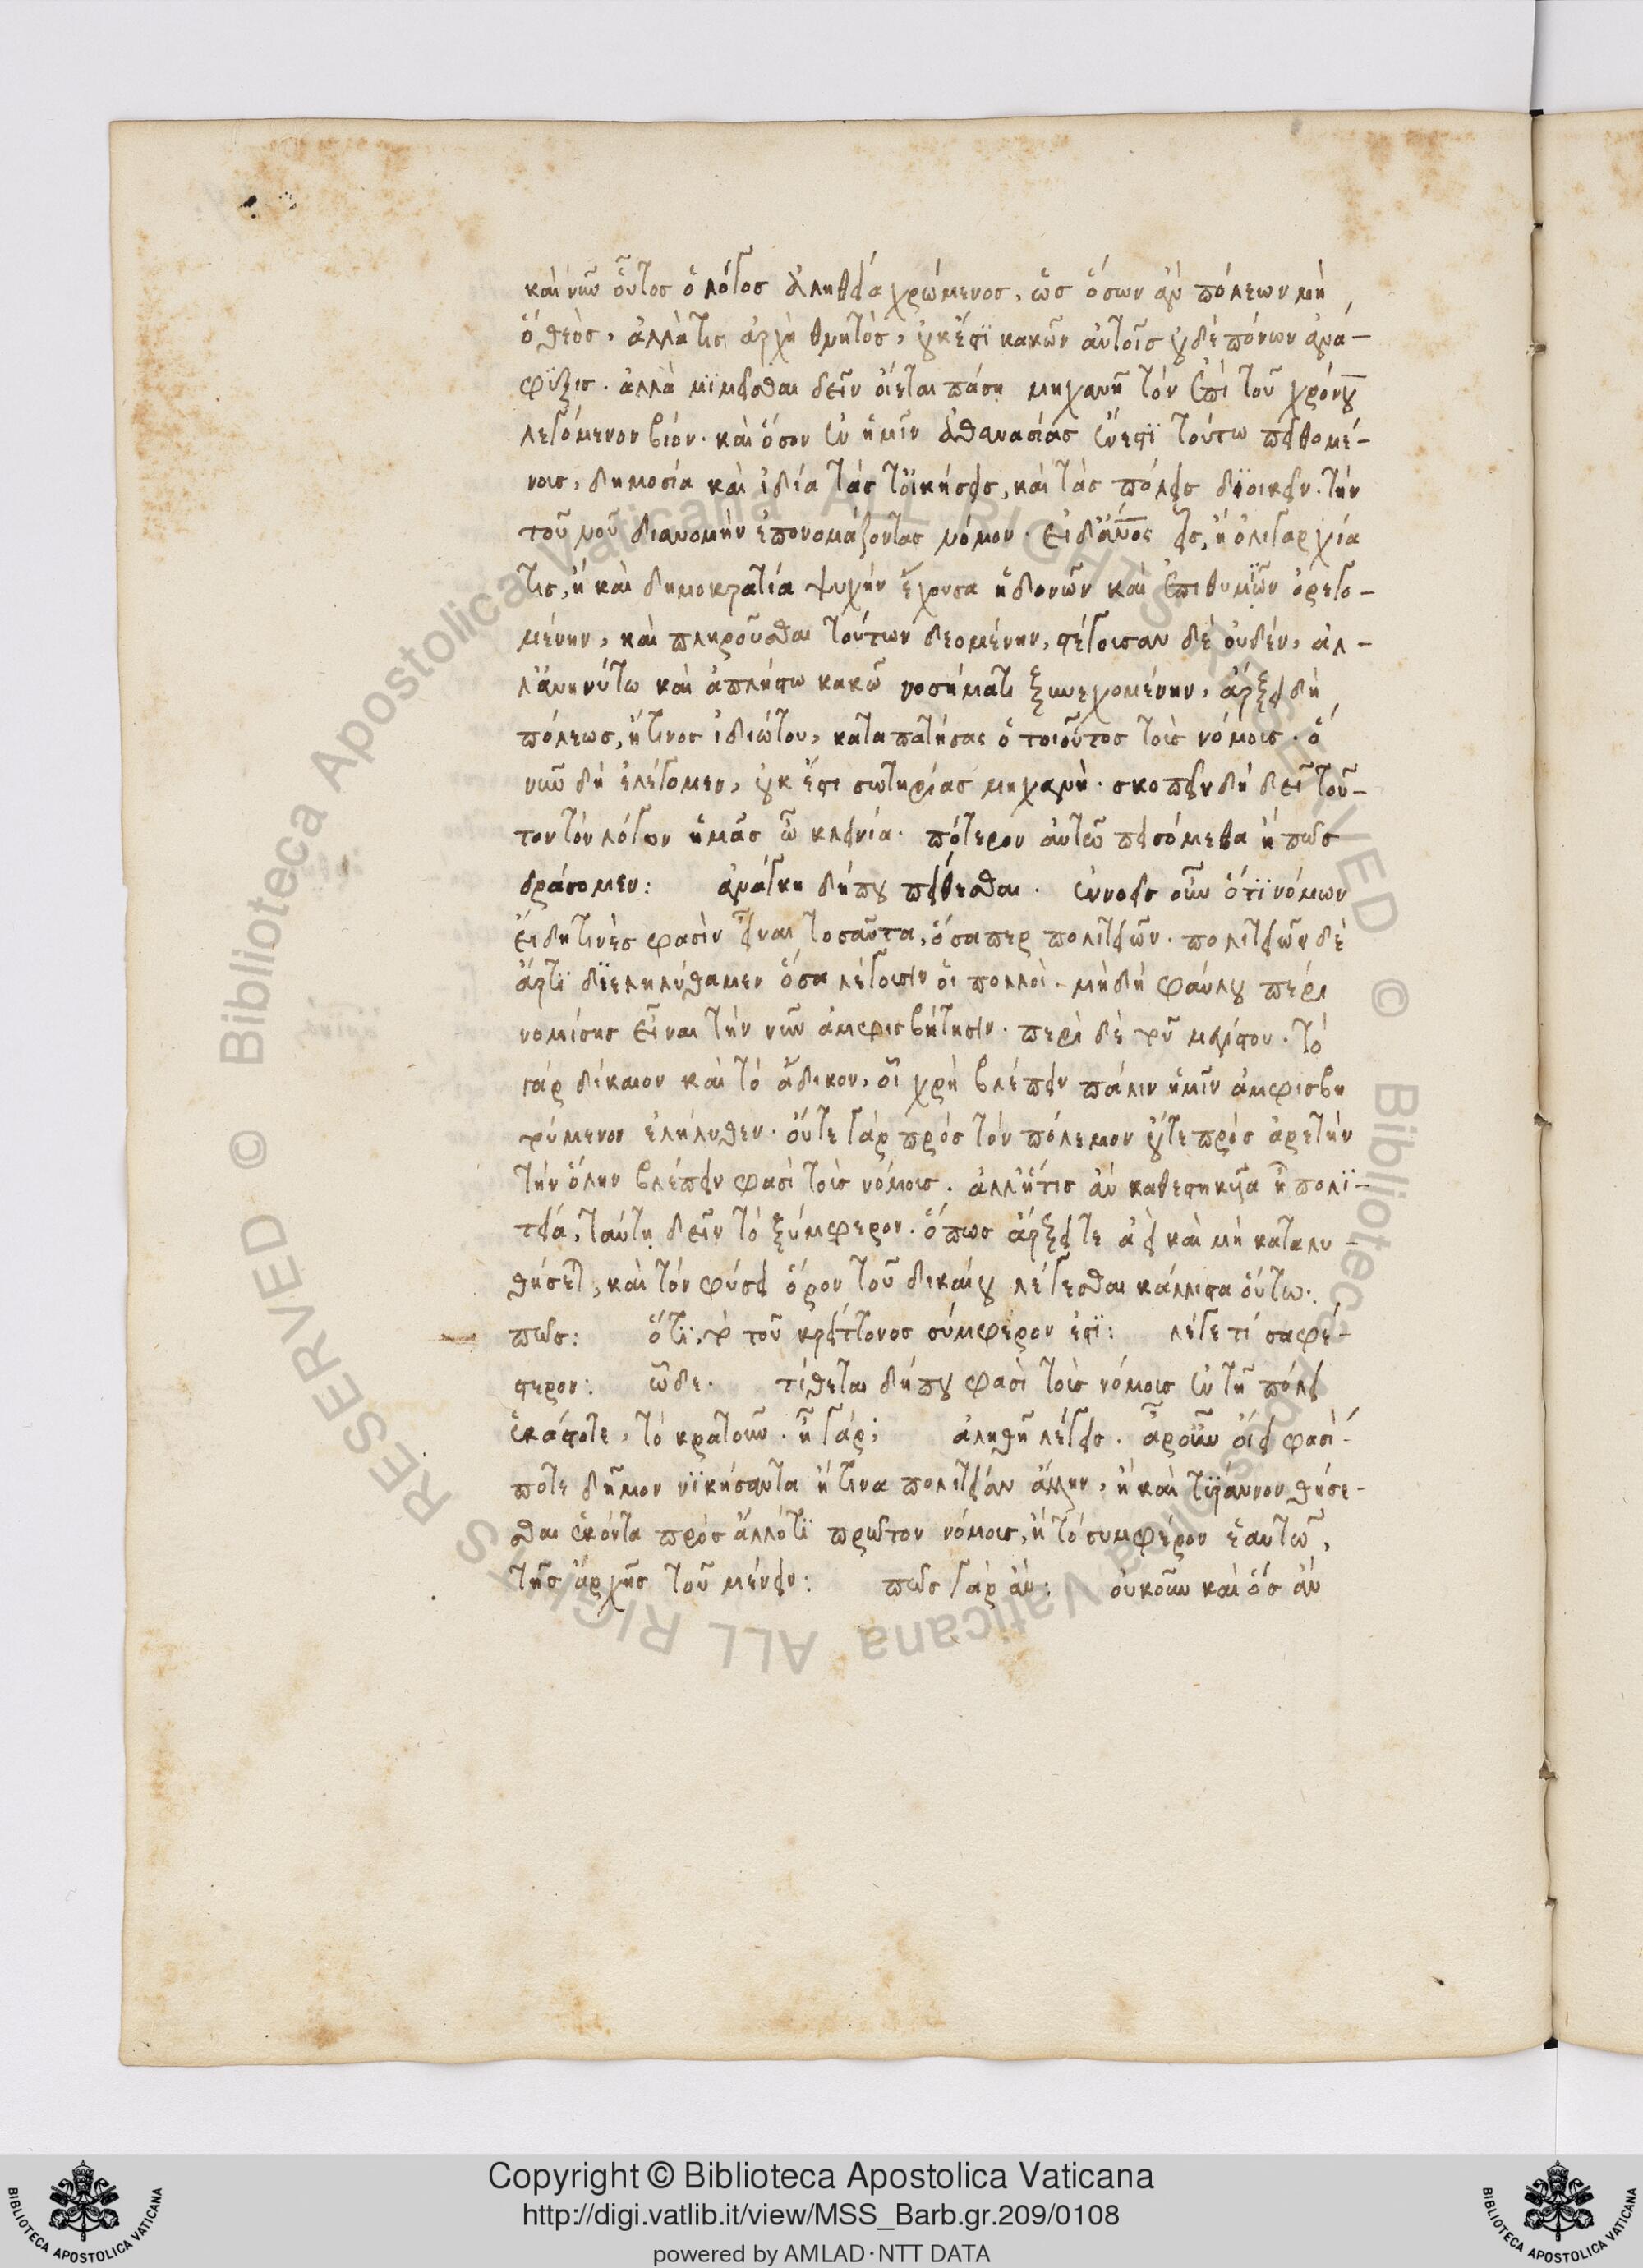 καὶ νῦν οὗτος ὁ λόγος ἀληθεία χρώμενος, ὡς ὅσων ἂν πόλεων μὴ
ὁ θεὸς, ἀλλὰ τις ἄρχη θνητὸς, οὐκ ἔστϊ κακῶν αὐτοῖς οὐδὲ πόνων ἀνά-
φϋξις. ἀλλὰ μϊμεῖσθαι δεῖν οἴεται πάση μηχανῆ τὸν ἐπὶ τοῦ χρόνου
λεγόμενον βίον. καὶ ὅσον ἐν ἡμῖν ἀθανασίας ἔνεστϊ τούτω πειθομέ-
νοις, δημοσία καὶ ἰδία τάς τ' οἰκήσεις, καὶ τὰς πόλεις δϊοικεῖν. τὴν
τοῦ νοῦ διανομὴν ἐπονομάζοντας νόμον. εἰ δ' ἄνος εἷς, ἢ ὀλιγαρχία
τις, ἢ καὶ δημοκρατία ψυχὴν ἔχουσα ἡδονῶν καὶ ἐπιθυμϊῶν ὀρεγο-
μένην, καὶ πληροῦσθαι τούτων δεομένην, στέγουσαν δὲ οὐδὲν, ἀλ-
λ' ἀνηνύτω καὶ ἀπλήστω κακῶ νοσήματι ξυνεχομένην, ἄρξει δὴ
πόλεως, ἤ τινος ἰδιώτου, καταπατήσας ὁ τοιοῦτος τοὺς νόμους. ὃ
νῦν δὴ ἐλέγομεν, οὐκ ἔστι σωτηρίας μηχανὴ. σκοπεῖν δὴ δεῖ τοῦ-
τον τὸν λόγον ἡμᾶς ὦ κλεινία. πότερον αὐτῶ πεισόμεθα ἢ πῶς
δράσομεν: ἀνάγκη δήπου πείθεσθαι. ἐννοεῖς οὖν ὅτϊ νόμων
εἴδη τινὲς φασὶν εἶναι τοσαῦτα, ὅσα περ πολιτειῶν. πολιτειῶν δὲ
ἄρτϊ δϊεληλύθαμεν ὅσα λέγουσιν οἱ πολλοὶ. μὴ δὴ φαύλου πέρι
νομίσης εἶναι τὴν νῦν ἀμφισβήτησιν. περὶ δὲ τοῦ μεγίστου. τὸ
γὰρ δίκαιον καὶ τὸ ἄδικον, οἷ χρὴ βλέπειν πάλιν ἡμῖν ἀμφισβη
τούμενον ἐλήλυθεν. οὔτε γὰρ πρὸς τὸν πόλεμον οὔτε πρὸς ἀρετὴν
τὴν ὅλην βλέπειν φασὶ τοὺς νόμους. ἀλλ' ἥτις ἂν καθεστηκυῖα ἦ πολϊ-
τεία, ταύτη δεῖν τὸ ξύμφερον. ὅπως ἄρξει τε ἀεὶ καὶ μὴ καταλυ-
θήσετ, καὶ τὸν φύσει ὅρον τοῦ δικαίου λέγεσθαι κάλλιστα οὕτω.
πῶς: ὅτϊ, τὸ τοῦ κρείττονος σύμφερον ἐστϊ: λέγε τί σαφέ-
στερον: ὧδε. τίθεται δήπου φασὶ τοὺς νόμους ἐν τῆ πόλει
ἑκάστοτε, τὸ κρατοῦν. ἦ γάρ; ἀληθῆ λέγεις. ἆρ' οὖν οἴει φασί-
ποτε δῆμον νϊκήσαντα ἤ τινα πολιτείαν ἄλλην, ἢ καὶ τύραννον θήσε-
σθαι ἑκόντα πρὸς ἄλλό τϊ πρῶτον νόμους, ἢ τὸ συμφέρον ἑαυτῶ,
τῆς ἀρχῆς τοῦ μένειν: πῶς γὰρ ἄν: οὐκοῦν καὶ ὃς ἂν
Copyright © Biblioteca Apostolica Vaticana
http://digi.vatlib.it/view/MSS_Barb.gr.209/0108
powered by AMLAD·NTT DATA
BIBLIOTECA APOSTOLICA VATICANA
BIBLIOTECA APOSTOLICA VATICANA
© Biblioteca Apostolica Vaticana ALL RIGHTS RESERVED
© Biblioteca Apostolica Vaticana ALL RIGHTS RESERVED